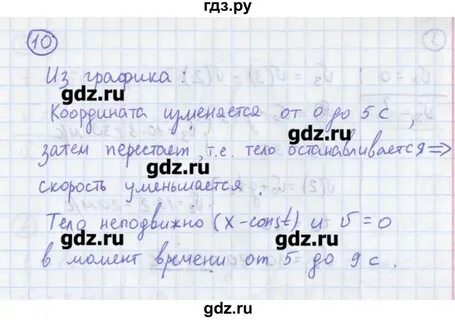 гдз.ру
10
Из графика:
gdz.ru gdz.ru
Координата изменяется от 0 до 5 с,
затем перестает, т.е. тело останавливается ⇒
gdz.ru gdz.ru
скорость уменьшается.
Тело неподвижно (x-const) и v = 0
gdz.ru gdz.ru
в момент времени от 5 до 9 с.
gdz.ru